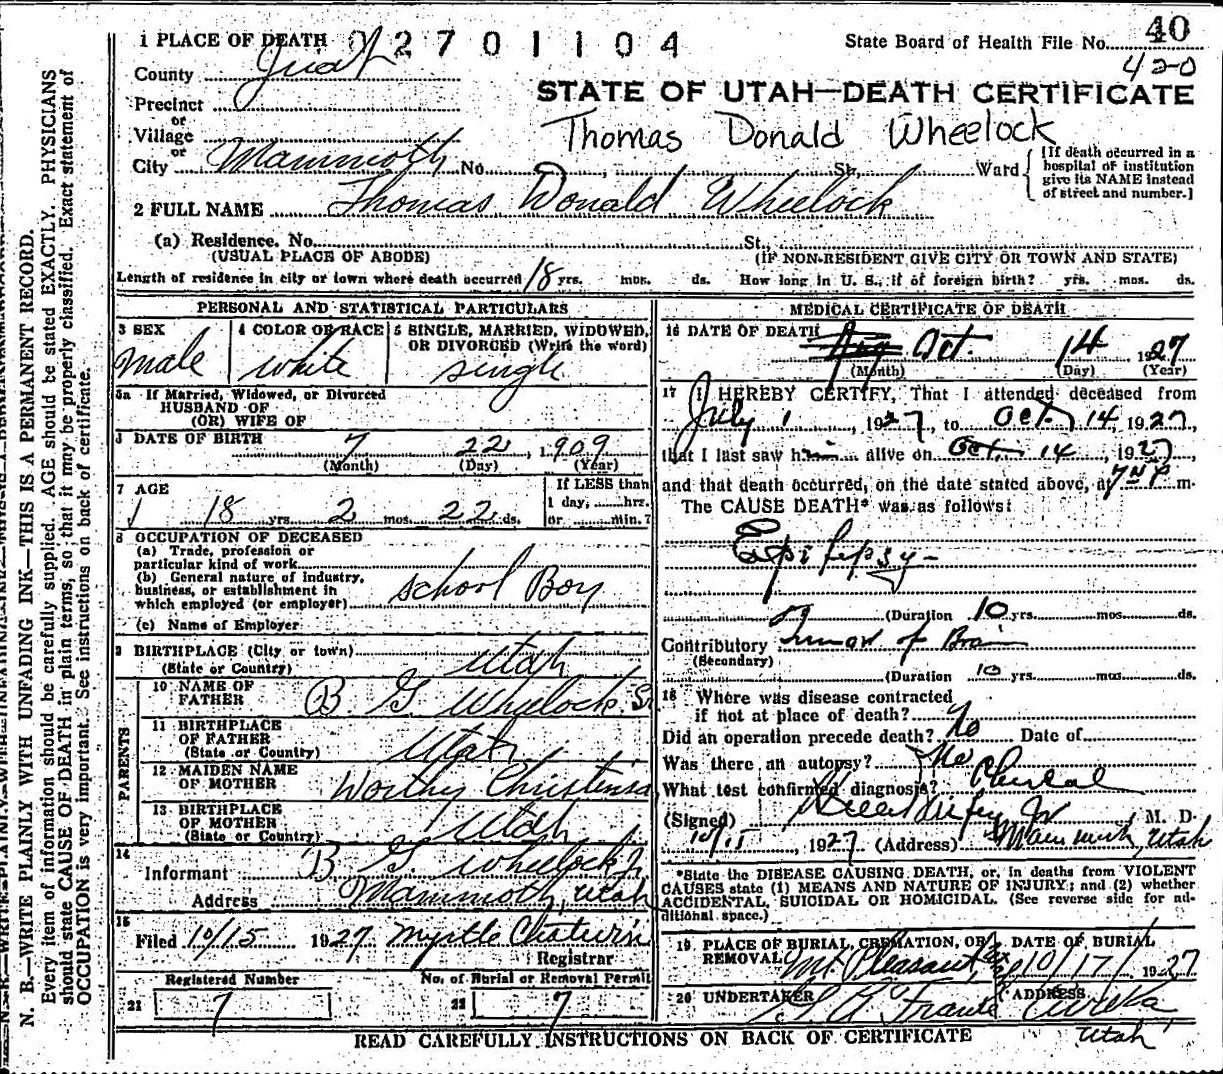 1 PLACE OF DEATH 02701104
State Board of Health File No. 40
420
County Juab
STATE OF UTAH—DEATH CERTIFICATE
Precinct
or
Village
Thomas Donald Wheelock
or
City Mammoth No. St., Ward [If death occurred in a hospital or institution give its NAME instead of street and number.]
2 FULL NAME Thomas Donald Wheelock
(a) Residence. No. St.,
(USUAL PLACE OF ABODE) (IF NON-RESIDENT GIVE CITY OR TOWN AND STATE)
Length of residence in city or town where death occurred 18 yrs. mos. ds. How long in U. S., if of foreign birth? yrs. mos. ds.
PERSONAL AND STATISTICAL PARTICULARS
3 SEX 4 COLOR OR RACE 5 SINGLE, MARRIED, WIDOWED, OR DIVORCED (Write the word)
male white single
5a If Married, Widowed, or Divorced
HUSBAND OF
(OR) WIFE OF
6 DATE OF BIRTH 7 22, 1909
(Month) (Day) (Year)
7 AGE If LESS than
1 day, hrs.
18 yrs. 2 mos. 22 ds. or min.?
8 OCCUPATION OF DECEASED
(a) Trade, profession or
particular kind of work
(b) General nature of industry,
business, or establishment in
which employed (or employer) School Boy
(c) Name of Employer
9 BIRTHPLACE (City or town)
(State or Country) Utah
PARENTS
10 NAME OF
FATHER B G Wheelock Sr
11 BIRTHPLACE
OF FATHER
(State or Country) Utah
12 MAIDEN NAME
OF MOTHER Worthy Christensen
13 BIRTHPLACE
OF MOTHER
(State or Country) Utah
14
Informant B G Wheelock Jr.
Address Mammoth, Utah
15
Filed 10/15 1927 Myrtle
Registrar
Registered Number No. of Burial or Removal Permit
21 7 22 7
MEDICAL CERTIFICATE OF DEATH
16 DATE OF DEATH Aug Oct. 14 1927
(Month) (Day) (Year)
17 I HEREBY CERTIFY, That I attended deceased from
July 1, 1927, to Oct 14 1927,
that I last saw him alive on Oct. 14, 1927,
and that death occurred, on the date stated above, at m.
The CAUSE DEATH* was as follows:
Epilepsy
(Duration 10 yrs. mos. ds.
Contributory Tumor of Brain
(Secondary)
(Duration 10 yrs. mos. ds.
18 Where was disease contracted
if not at place of death?
Did an operation precede death? No Date of
Was there an autopsy? No
What test confirmed diagnosis? Clinical
(Signed) M. D.
10/15, 1927 (Address) Mammoth, Utah
*State the DISEASE CAUSING DEATH, or, in deaths from VIOLENT
CAUSES state (1) MEANS AND NATURE OF INJURY; and (2) whether
ACCIDENTAL, SUICIDAL OR HOMICIDAL. (See reverse side for ad-
ditional space.)
19 PLACE OF BURIAL, CREMATION, OR REMOVAL DATE OF BURIAL
Mt Pleasant, 10/17/ 1927
20 UNDERTAKER ADDRESS
Eureka
Utah
READ CAREFULLY INSTRUCTIONS ON BACK OF CERTIFICATE
N. B.—WRITE PLAINLY WITH UNFADING INK—THIS IS A PERMANENT RECORD.
Every item of information should be carefully supplied. AGE should be stated EXACTLY. PHYSICIANS
should state CAUSE OF DEATH in plain terms, so that it may be properly classified. Exact statement of
OCCUPATION is very important. See instructions on back of certificate.